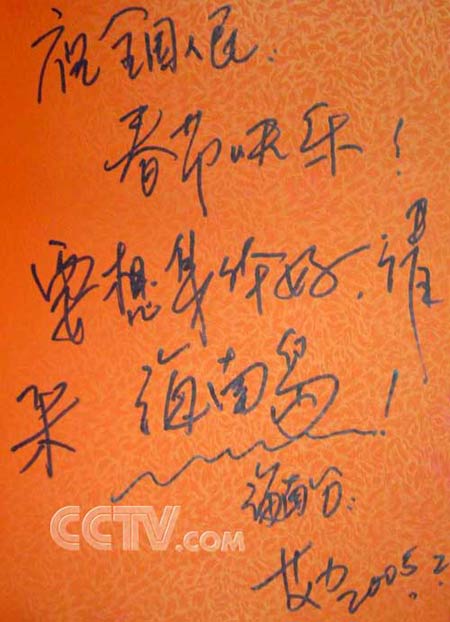 祝全国人民:
春节快乐!
要想身体好,请
来海南岛!
海南台:
艾力2005.2
CCTV.com